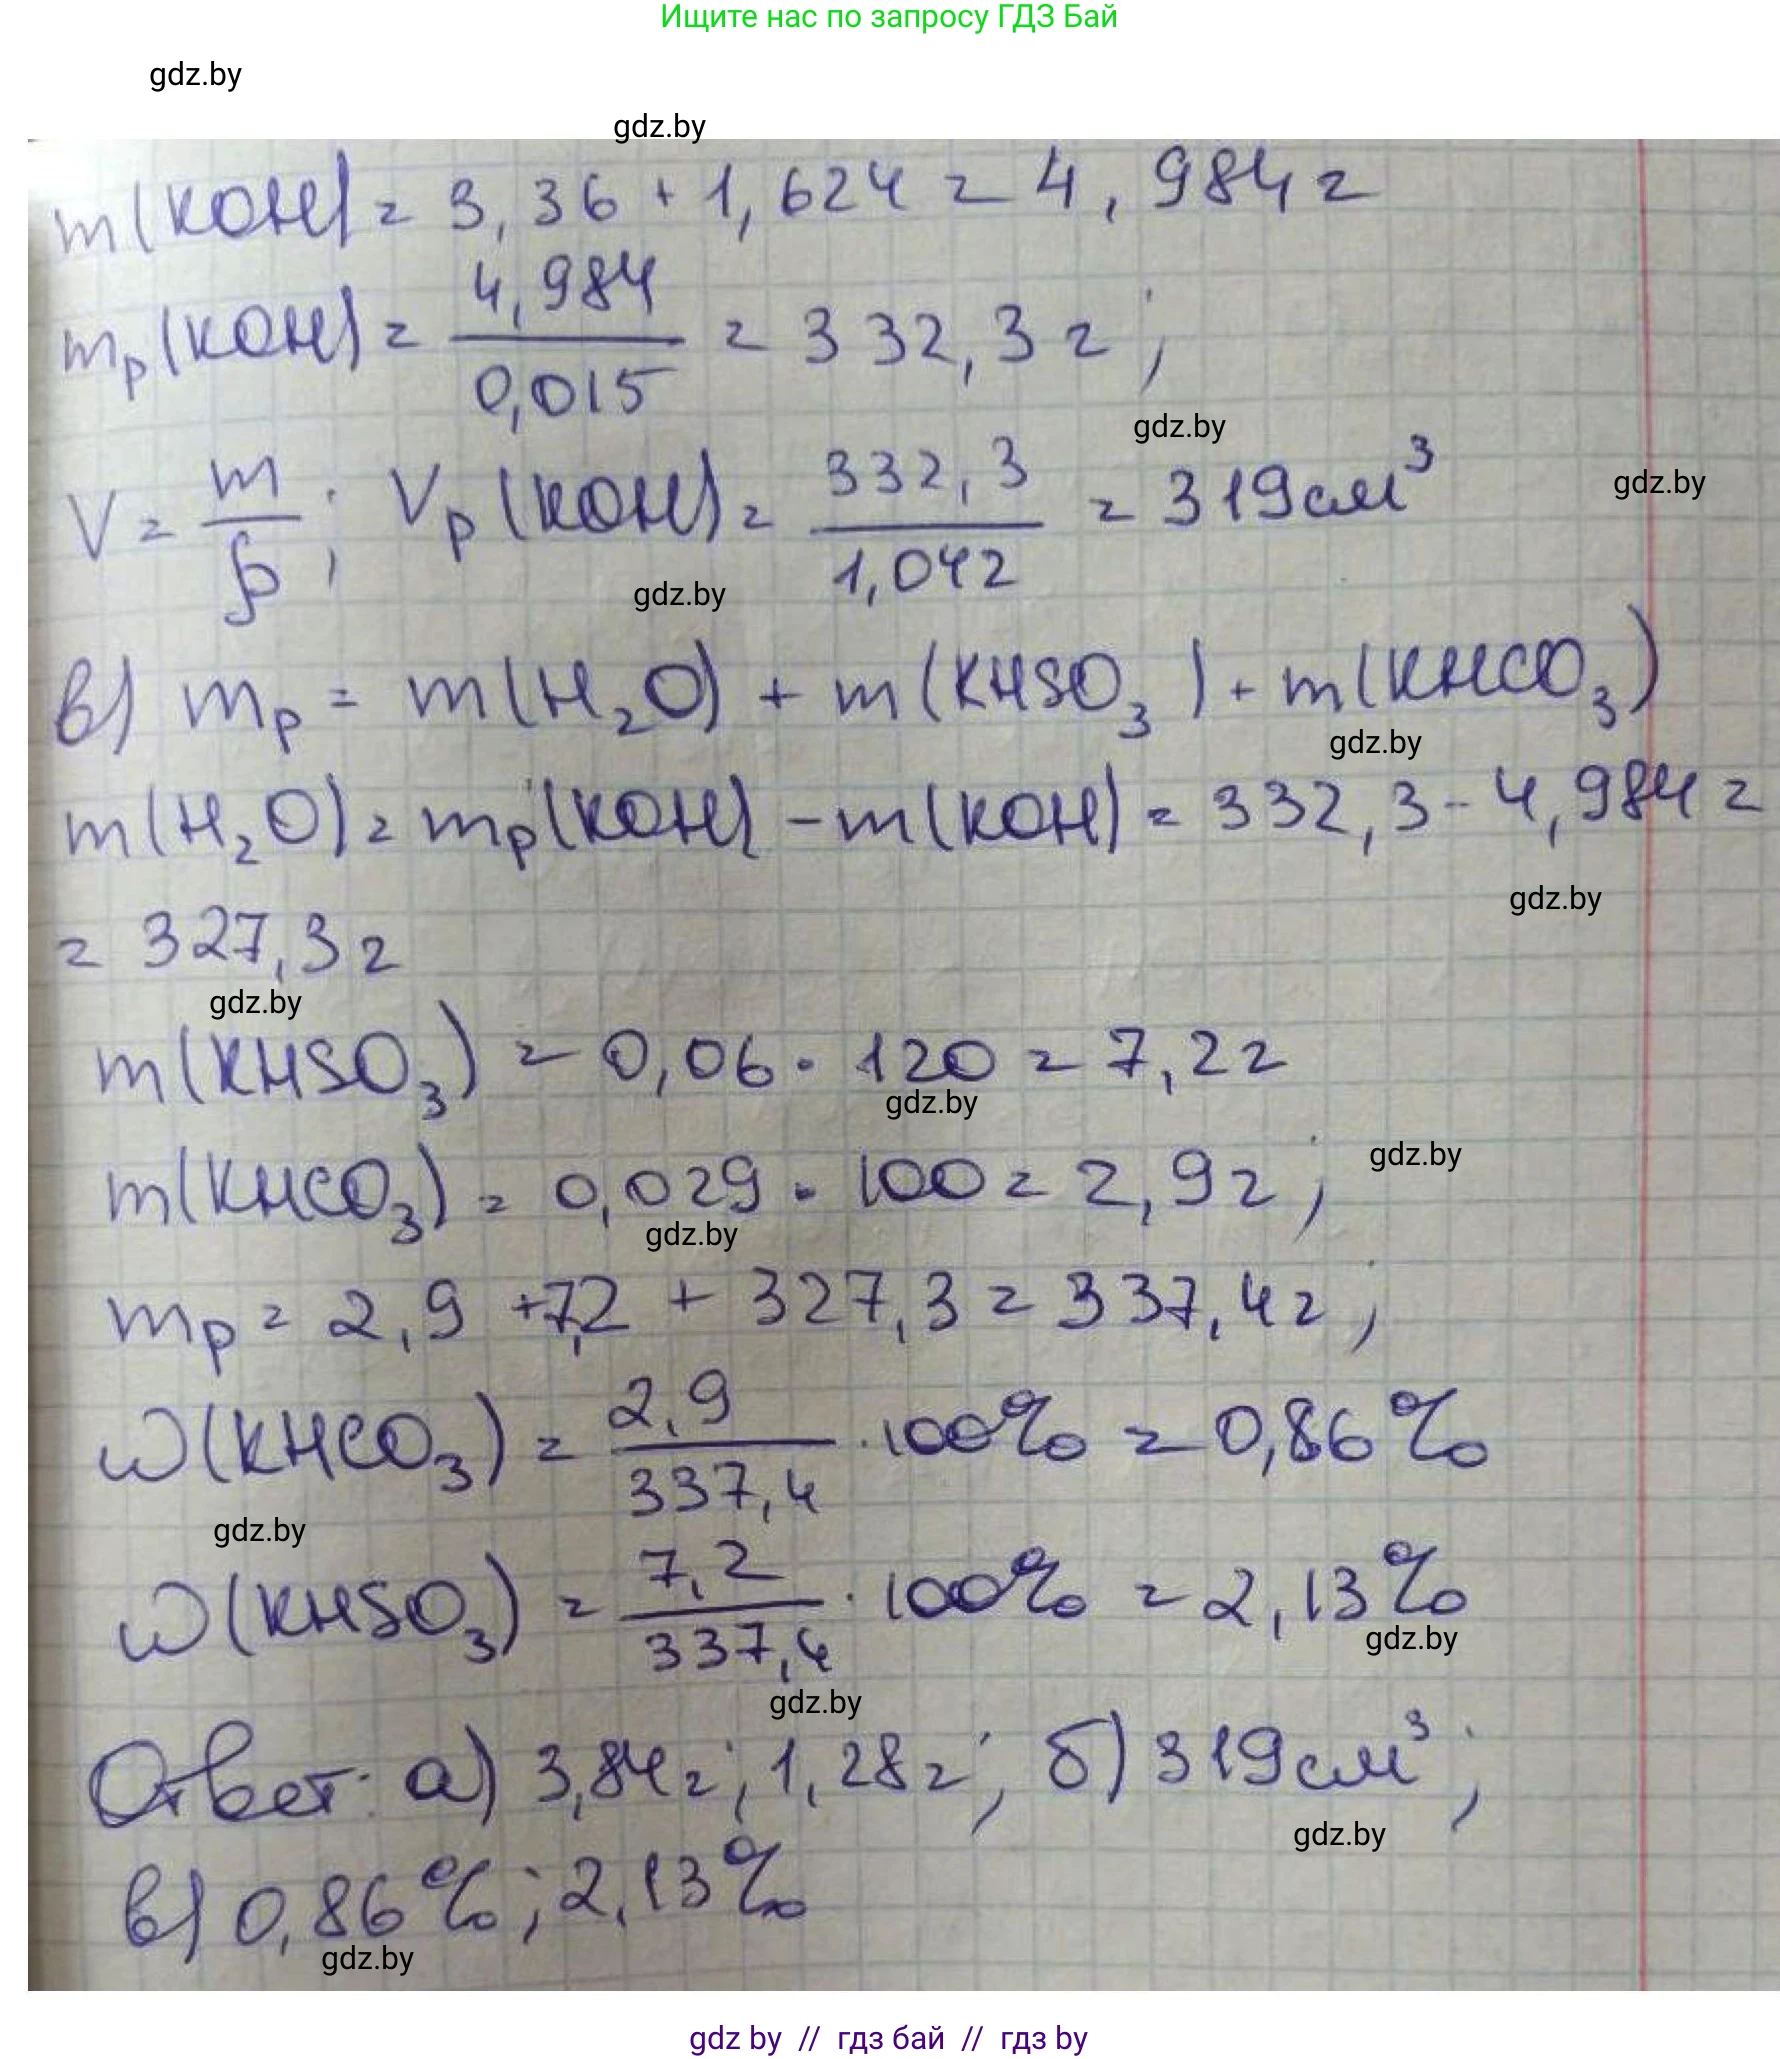 Ищите нас по запросу ГДЗ Бай
gdz.by
gdz.by
m(KOH) = 3,36 + 1,624 = 4,984 г
mр(KOH) = 4,984 / 0,015 = 332,3 г;
gdz.by
V = m/ρ; Vр(KOH) = 332,3 / 1,042 = 319 см³
gdz.by
gdz.by
в) mр = m(H₂O) + m(KHSO₃) + m(KHCO₃)
gdz.by
m(H₂O) = mр(KOH) - m(KOH) = 332,3 - 4,984 =
gdz.by
= 327,3 г
gdz.by
m(KHSO₃) = 0,06 · 120 = 7,2 г
gdz.by
gdz.by
m(KHCO₃) = 0,029 · 100 = 2,9 г;
gdz.by
mр = 2,9 + 7,2 + 327,3 = 337,4 г;
w(KHCO₃) = 2,9 / 337,4 · 100% = 0,86%
gdz.by
w(KHSO₃) = 7,2 / 337,4 · 100% = 2,13%
gdz.by
gdz.by
Ответ: а) 3,84 г; 1,28 г; б) 319 см³;
gdz.by
в) 0,86%; 2,13%
gdz.by
gdz by // гдз бай // гдз by